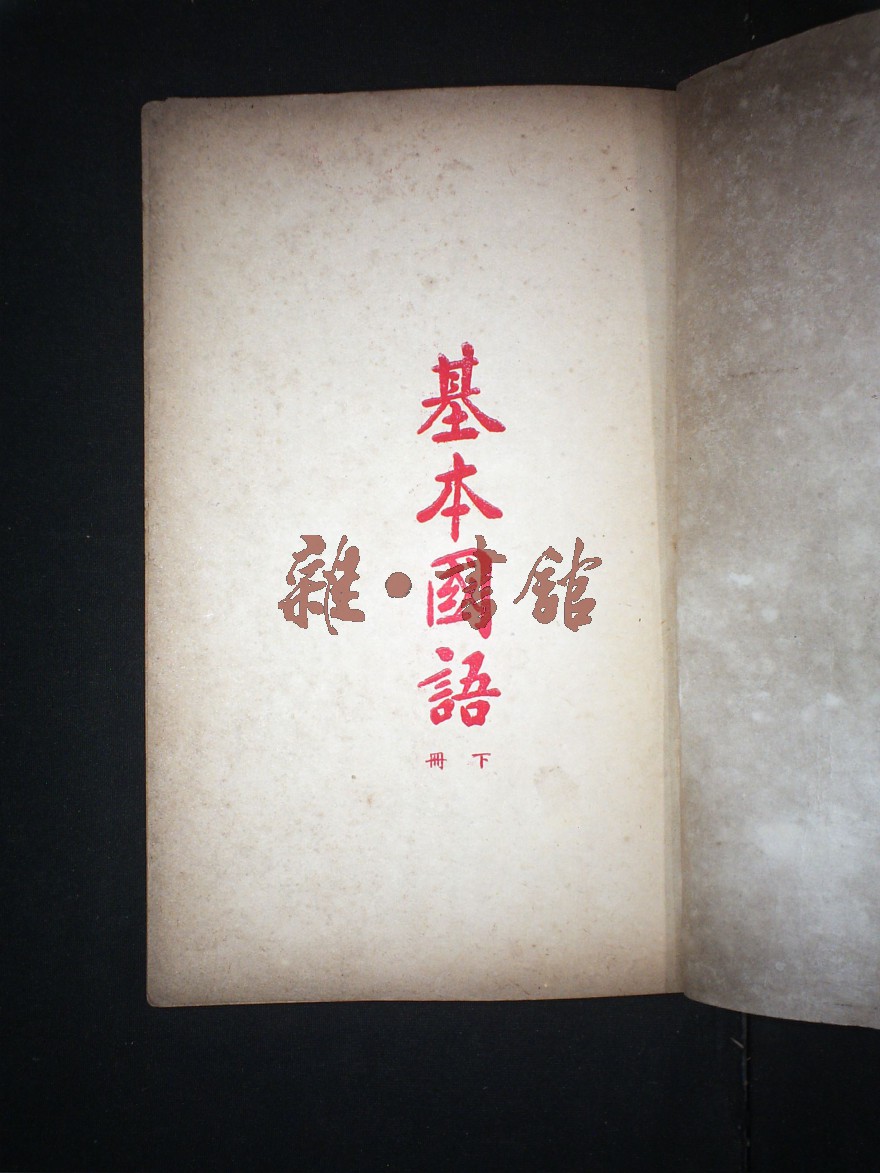 基本國語
下冊
雜·書館